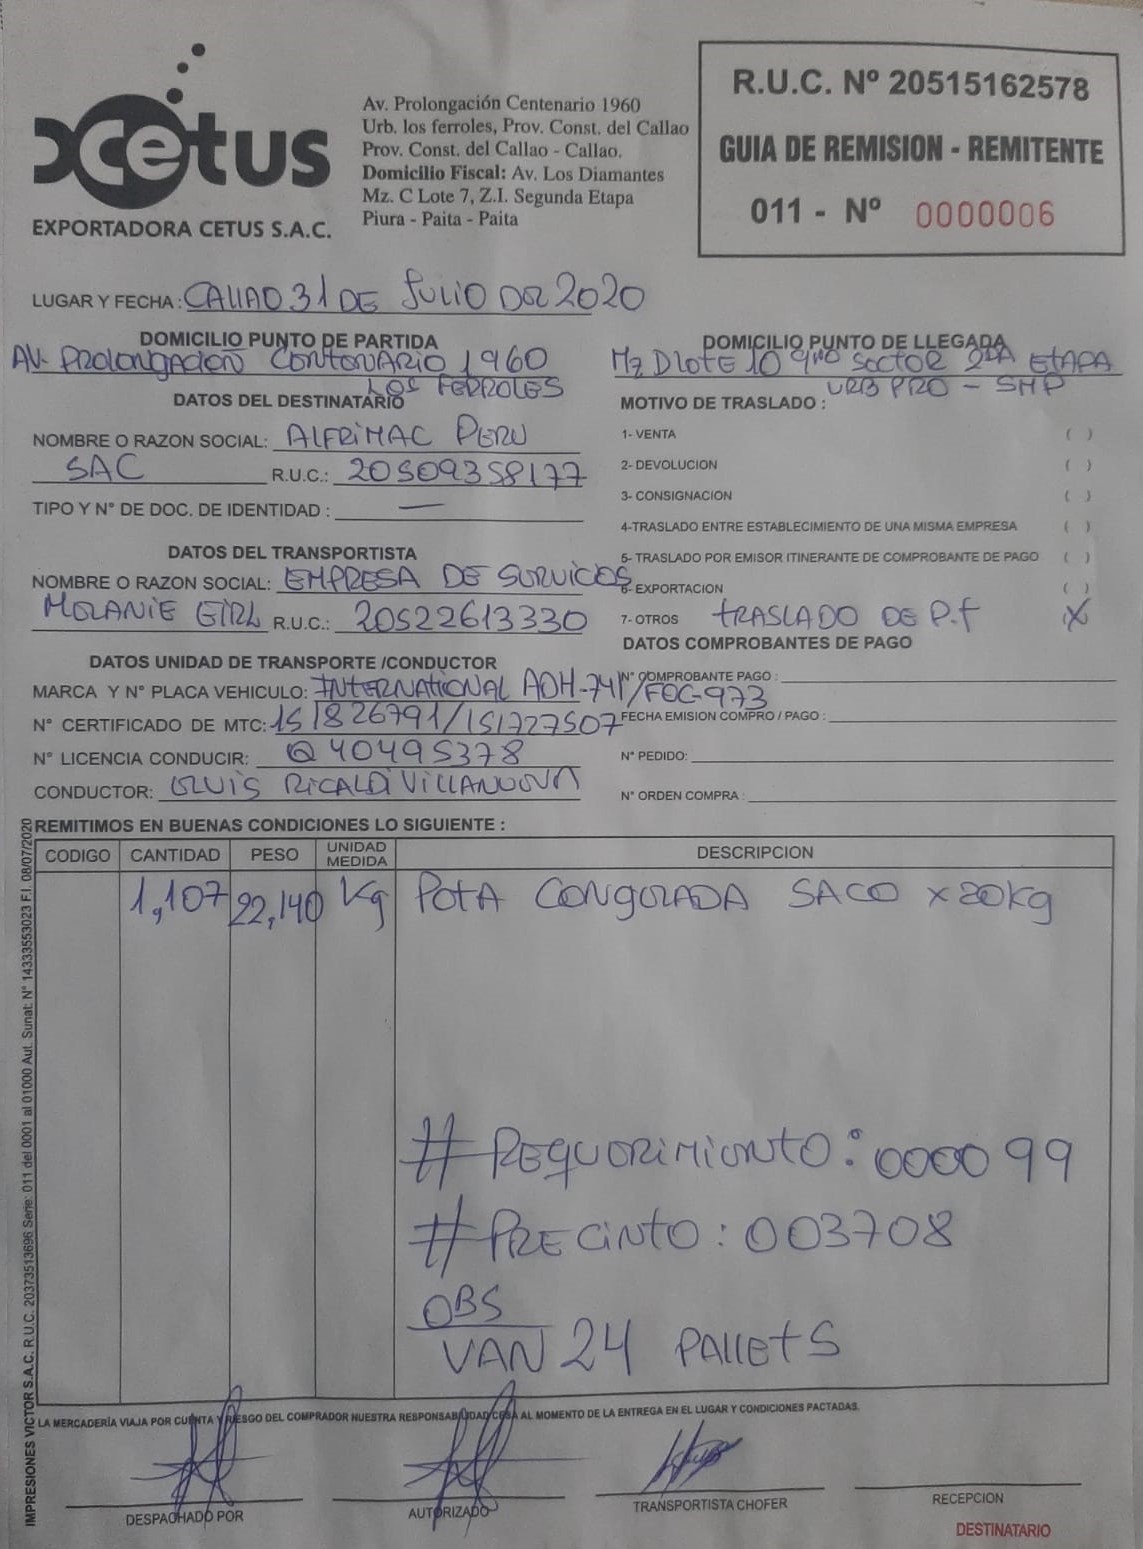 xcetus
EXPORTADORA CETUS S.A.C.
Av. Prolongación Centenario 1960
Urb. los ferroles, Prov. Const. del Callao
Prov. Const. del Callao - Callao.
Domicilio Fiscal: Av. Los Diamantes
Mz. C Lote 7, Z.I. Segunda Etapa
Piura - Paita - Paita
R.U.C. Nº 20515162578
GUIA DE REMISION - REMITENTE
011 - Nº 0000006
LUGAR Y FECHA: CALLAO 31 DE JULIO DEL 2020
DOMICILIO PUNTO DE PARTIDA
AV. PROLONGACION CENTENARIO 1960
LOS FERROLES
DOMICILIO PUNTO DE LLEGADA
Mz D LOTE 10 4TO SECTOR 2DA ETAPA
URB PRO - SMP
DATOS DEL DESTINATARIO
NOMBRE O RAZON SOCIAL: ALFRIMAC PERU
SAC R.U.C.: 20509358177
TIPO Y N° DE DOC. DE IDENTIDAD : —
MOTIVO DE TRASLADO :
1- VENTA ( )
2- DEVOLUCION ( )
3- CONSIGNACION ( )
4-TRASLADO ENTRE ESTABLECIMIENTO DE UNA MISMA EMPRESA ( )
5- TRASLADO POR EMISOR ITINERANTE DE COMPROBANTE DE PAGO ( )
6- EXPORTACION ( )
7- OTROS TRASLADO DE P.f X
DATOS DEL TRANSPORTISTA
NOMBRE O RAZON SOCIAL: EMPRESA DE SERVICIOS
MELANIE EIRL R.U.C.: 20522613330
DATOS UNIDAD DE TRANSPORTE /CONDUCTOR
MARCA Y N° PLACA VEHICULO: INTERNATIONAL ADH-741/FOC-973
N° CERTIFICADO DE MTC: 151826791/151727507
N° LICENCIA CONDUCIR: Q40495378
CONDUCTOR: LUIS RICALDI VILLANUEVA
DATOS COMPROBANTES DE PAGO
N° COMPROBANTE PAGO :
FECHA EMISION COMPRO / PAGO :
N° PEDIDO:
N° ORDEN COMPRA :
REMITIMOS EN BUENAS CONDICIONES LO SIGUIENTE :
CODIGO CANTIDAD PESO UNIDAD MEDIDA DESCRIPCION
1,107 22,140 Kg POTA CONGELADA SACO x 20Kg
# REQUERIMIENTO: 000099
# PRECINTO: 003708
OBS
VAN 24 PALLETS
LA MERCADERÍA VIAJA POR CUENTA Y RIESGO DEL COMPRADOR NUESTRA RESPONSABILIDAD CESA AL MOMENTO DE LA ENTREGA EN EL LUGAR Y CONDICIONES PACTADAS.
DESPACHADO POR
AUTORIZADO
TRANSPORTISTA CHOFER
RECEPCION
DESTINATARIO
IMPRESIONES VICTOR S.A.C. R.U.C. 20373513696 Serie: 011 del 0001 al 01000 Aut. Sunat: N° 14333553023 F.I. 08/07/2020